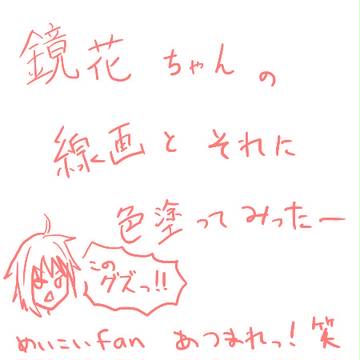 鏡花ちゃんの
線画とそれに
色塗ってみったー
この
グズっ!!
めいこいfan あつまれっ!笑